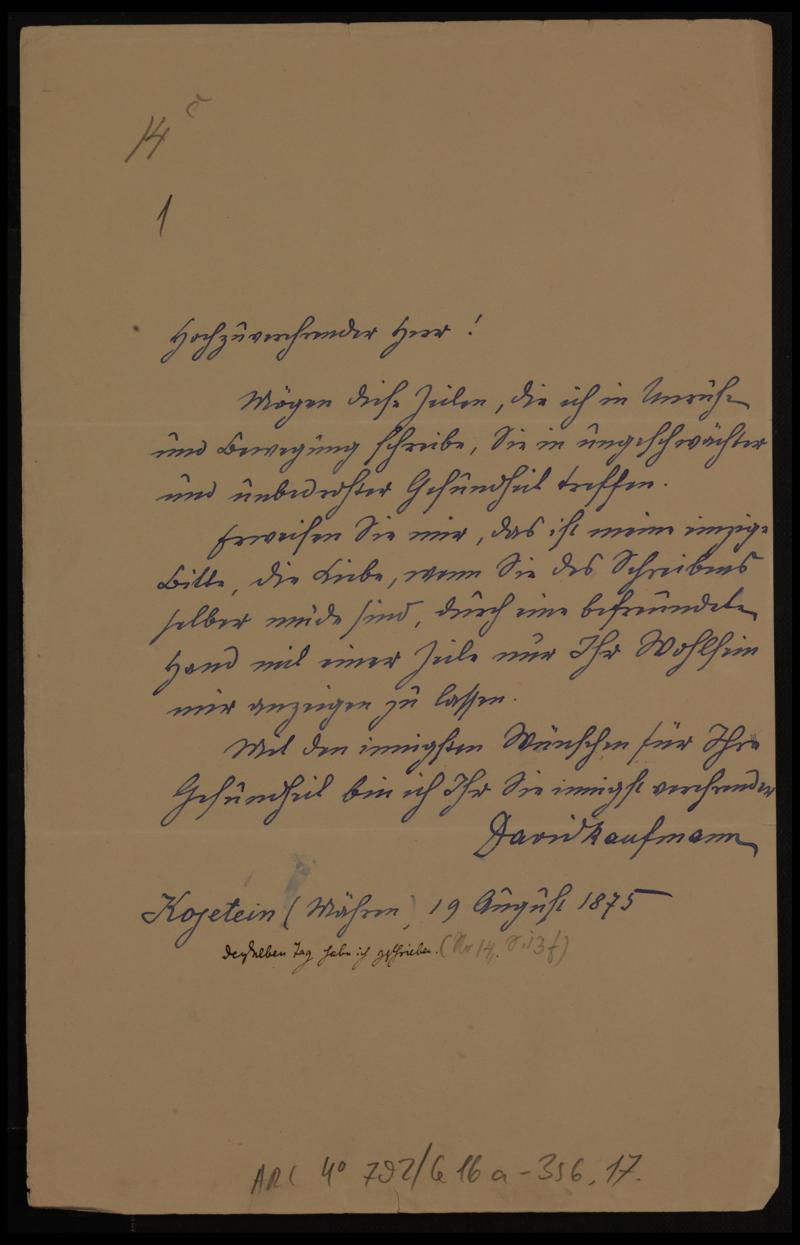 14 c
1
Hochzuverehrender Herr!
Mögen diese Zeilen, die ich in Unruhe
und Bewegung schreibe, Sie in ungeschwächter
und unbedrohter Gesundheit treffen.
Erweisen Sie mir, das ist meine einzige
Bitte, die Liebe, wenn Sie des Schreibens
selber müde sind, durch eine befreundete
Hand mit einer Zeile nur Ihr Wohlsein
mir anzeigen zu lassen.
Mit den innigsten Wünschen für Ihre
Gesundheit bin ich Ihr Sie innigst verehrender
David Kaufmann
Kojetein (Mähren), 19 August 1875
denselben Tag habe ich geschrieben. (No 14,
ARC 4° 792/G 16 a - 356, 17.